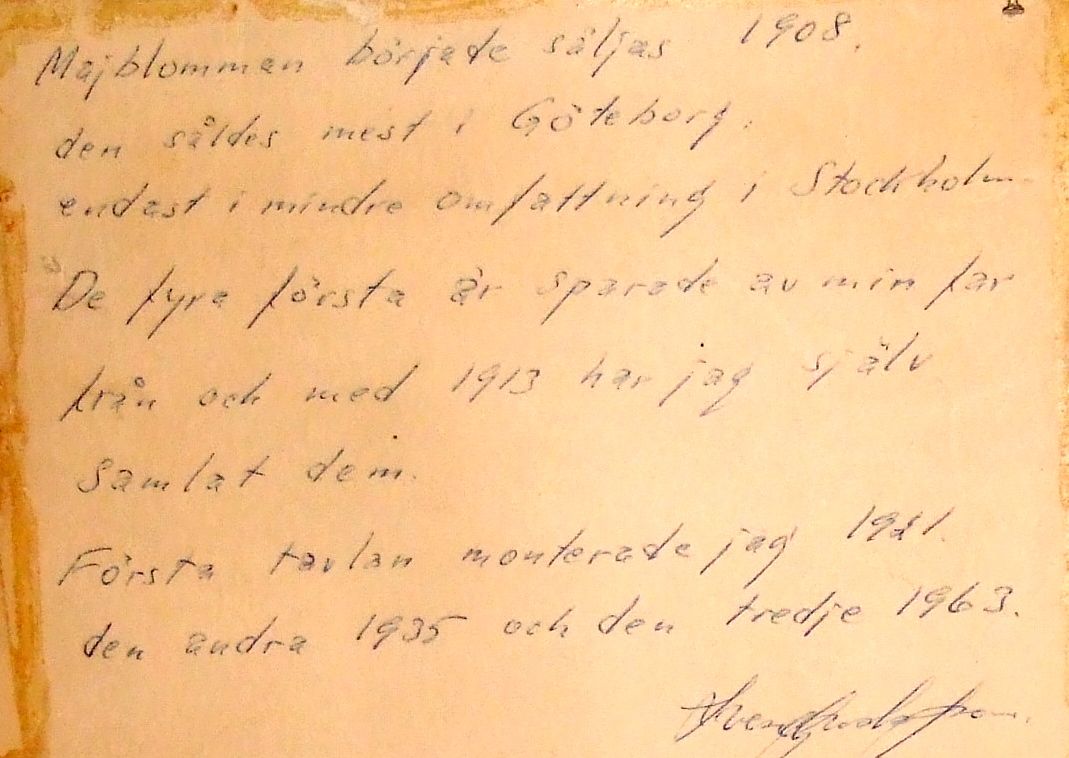 Majblomman började säljas 1908.
den såldes mest i Göteborg.
endast i mindre omfattning i Stockholm
De fyra första är sparade av min far
från och med 1913 har jag själv
samlat dem.
Första tavlan monterade jag 1921.
den andra 1935 och den tredje 1963.
Sven